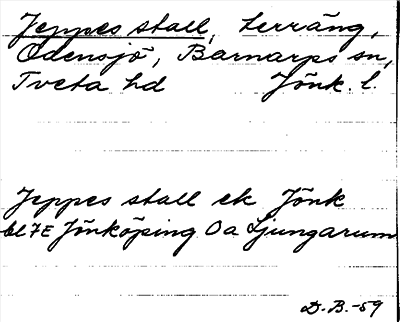 Jeppes stall, terräng,
Ödensjö, Barnarps sn,
Tveta hd Jönk. l.
Jeppes stall ek Jönk
bl 7E Jönköping Oa Ljungarum
D.B.-59